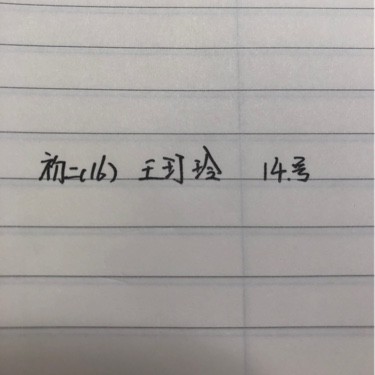 初二(16) 王玎玲 14.号